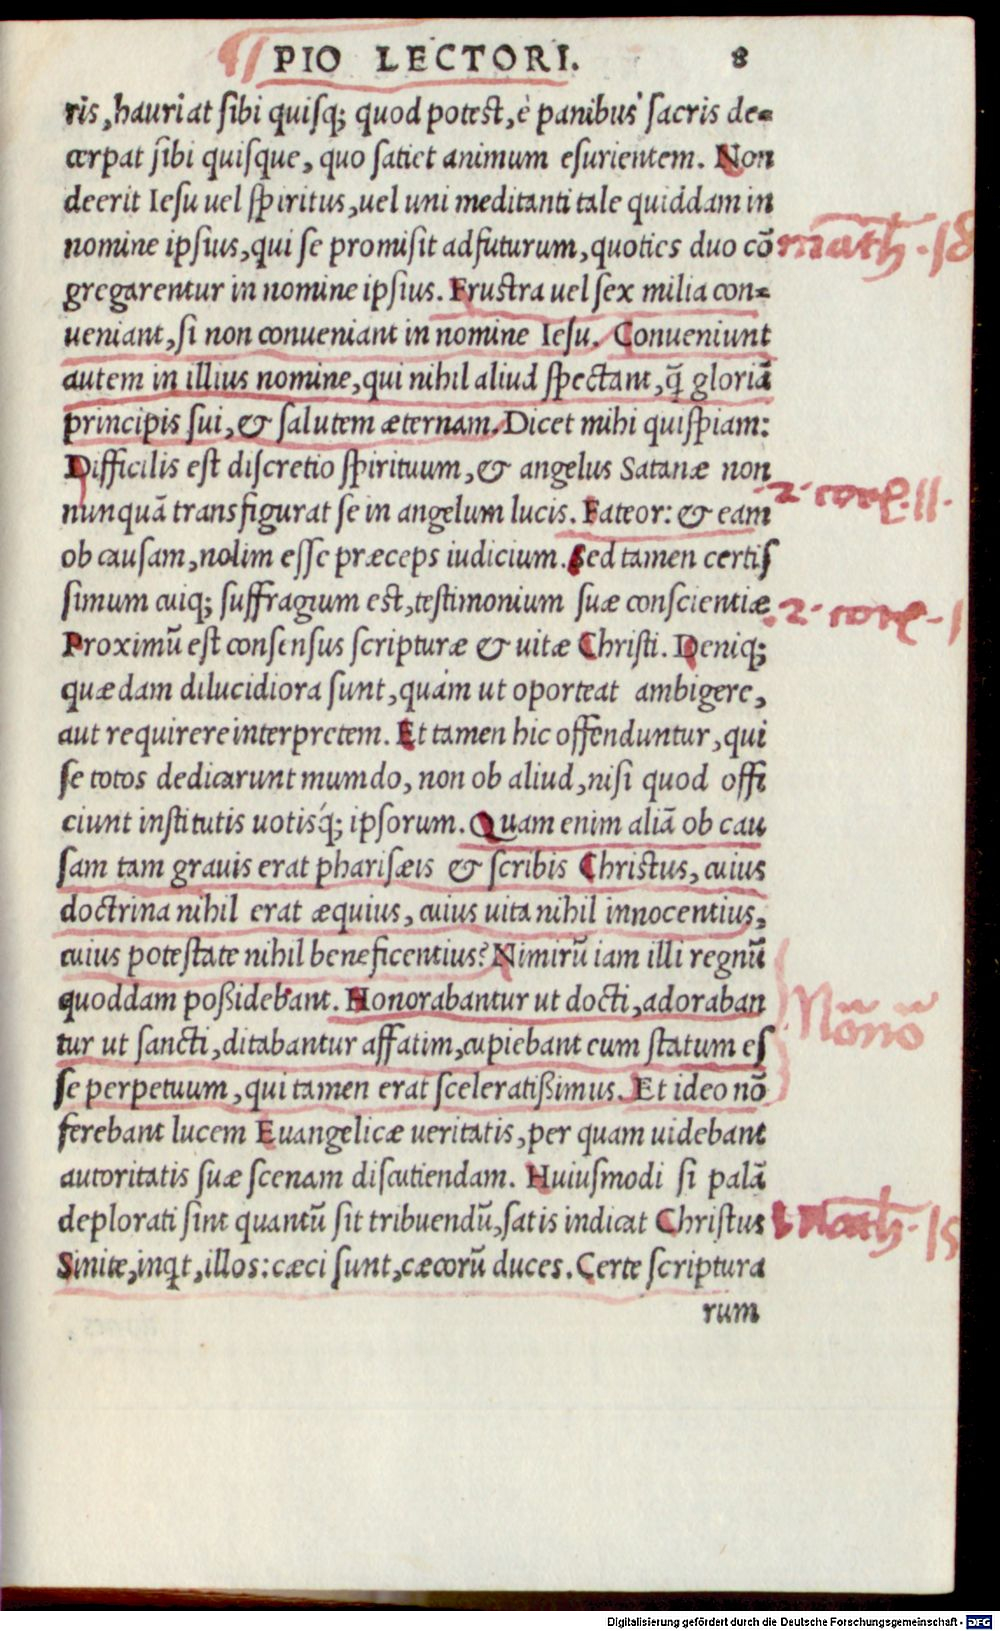 PIO LECTORI. 8
ris, hauriat sibi quisq; quod potest, è panibus sacris de=
cerpat sibi quisque, quo satiet animum esurientem. Non
deerit Iesu uel spiritus, uel uni meditanti tale quiddam in
nomine ipsius, qui se promisit adfuturum, quoties duo cō
math. 18
gregarentur in nomine ipsius. Frustra uel sex milia con=
ueniant, si non conueniant in nomine Iesu. Conueniunt
autem in illius nomine, qui nihil aliud spectant, q̃ gloriā
principis sui, & salutem æternam. Dicet mihi quispiam:
Difficilis est discretio spirituum, & angelus Satanæ non
2. cor. 11.
nunquā transfigurat se in angelum lucis. Fateor: & eam
ob causam, nolim esse præceps iudicium. Sed tamen certis
simum cuiq; suffragium est, testimonium suæ conscientiæ
2. cor. 1
Proximū est consensus scripturæ & uitæ Christi. Deniq;
quædam dilucidiora sunt, quàm ut oporteat ambigere,
aut requirere interpretem. Et tamen hic offenduntur, qui
se totos dedicarunt mumdo, non ob aliud, nisi quod offi
ciunt institutis uotisq́; ipsorum. Quam enim aliā ob cau
sam tam grauis erat pharisæis & scribis Christus, cuius
doctrina nihil erat æquius, cuius uita nihil innocentius,
cuius potestate nihil beneficentius? Nimirū iam illi regnū
quoddam poßidebant. Honorabantur ut docti, adoraban
tur ut sancti, ditabantur affatim, cupiebant eum statum es
se perpetuum, qui tamen erat sceleratißimus. Et ideo nō
ferebant lucem Euangelicæ ueritatis, per quam uidebant
autoritatis suæ scenam discutiendam. Huiusmodi si palā
deplorati sint quantū sit tribuendū, satis indicat Christus
Math. 15
Sinite, inqt, illos: cæci sunt, cæcorū duces. Certe scriptura
rum
Digitalisierung gefördert durch die Deutsche Forschungsgemeinschaft - DFG